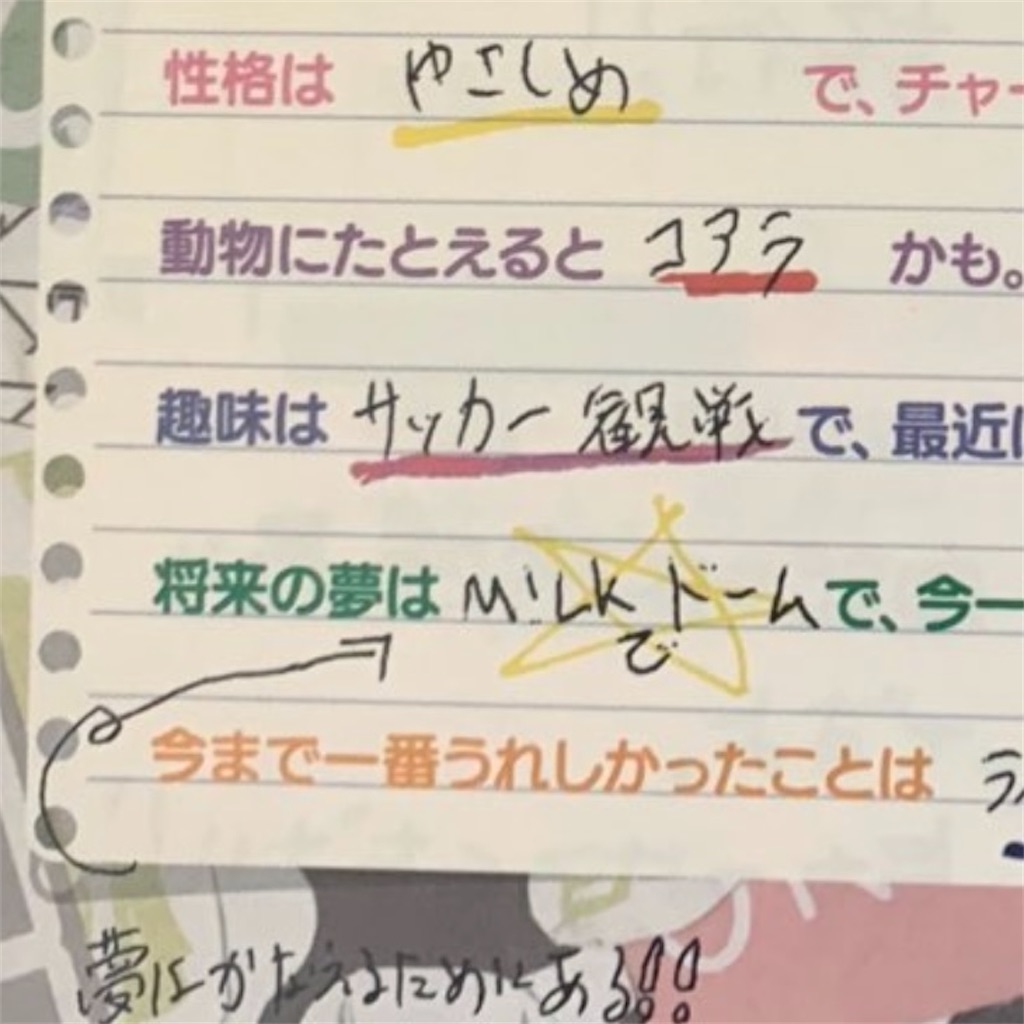 性格は やさしめ で、チャー
動物にたとえると コアラ かも。
趣味は サッカー観戦 で、最近は
将来の夢は MiLK ドーム で、今一
で
今まで一番うれしかったことは ライ
夢はかなえるためにある!!